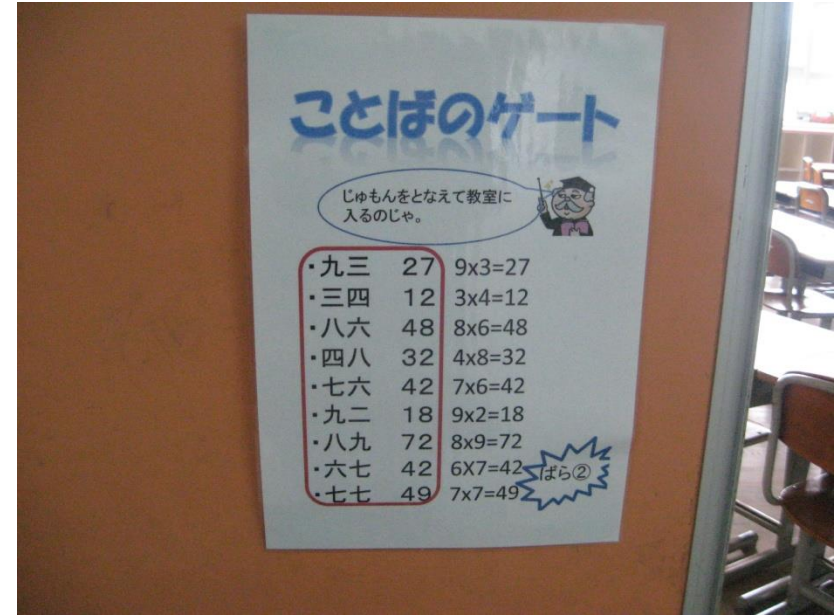 ことばのゲート
じゅもんをとなえて教室に
入るのじゃ。
・九三 27 9x3=27
・三四 12 3x4=12
・八六 48 8x6=48
・四八 32 4x8=32
・七六 42 7x6=42
・九二 18 9x2=18
・八九 72 8x9=72
・六七 42 6X7=42
・七七 49 7x7=49
ばら②